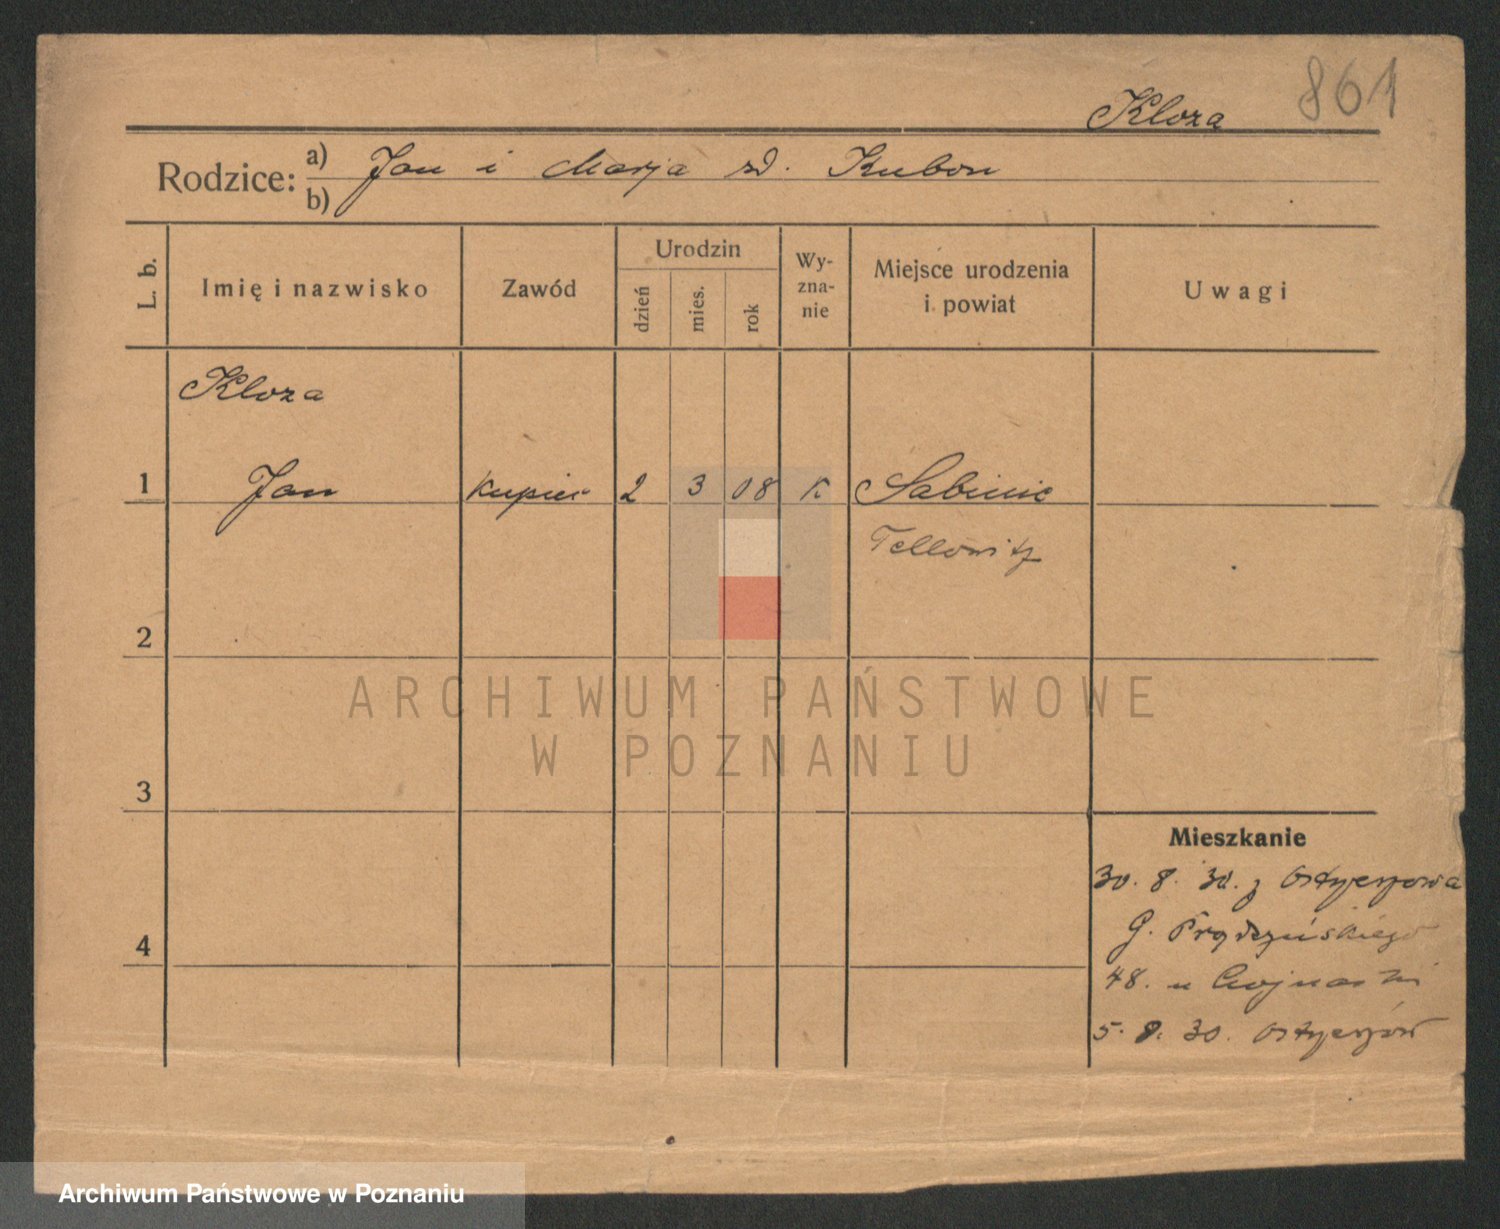 861
Kloza
Rodzice: a) Jan i Marja zd. Kubon
b)
L. b.
Imię i nazwisko
Zawód
Urodzin
dzień
mies.
rok
Wy-
zna-
nie
Miejsce urodzenia
i powiat
Uwagi
Kloza
1 Jan kupiec 2 3 08 K Sabinie
Tellowitz
2
3
4
ARCHIWUM PAŃSTWOWE
W POZNANIU
Mieszkanie
30. 8. 30. z
G. Prądzyńskiego
48. u
5. 8. 30.
Archiwum Państwowe w Poznaniu